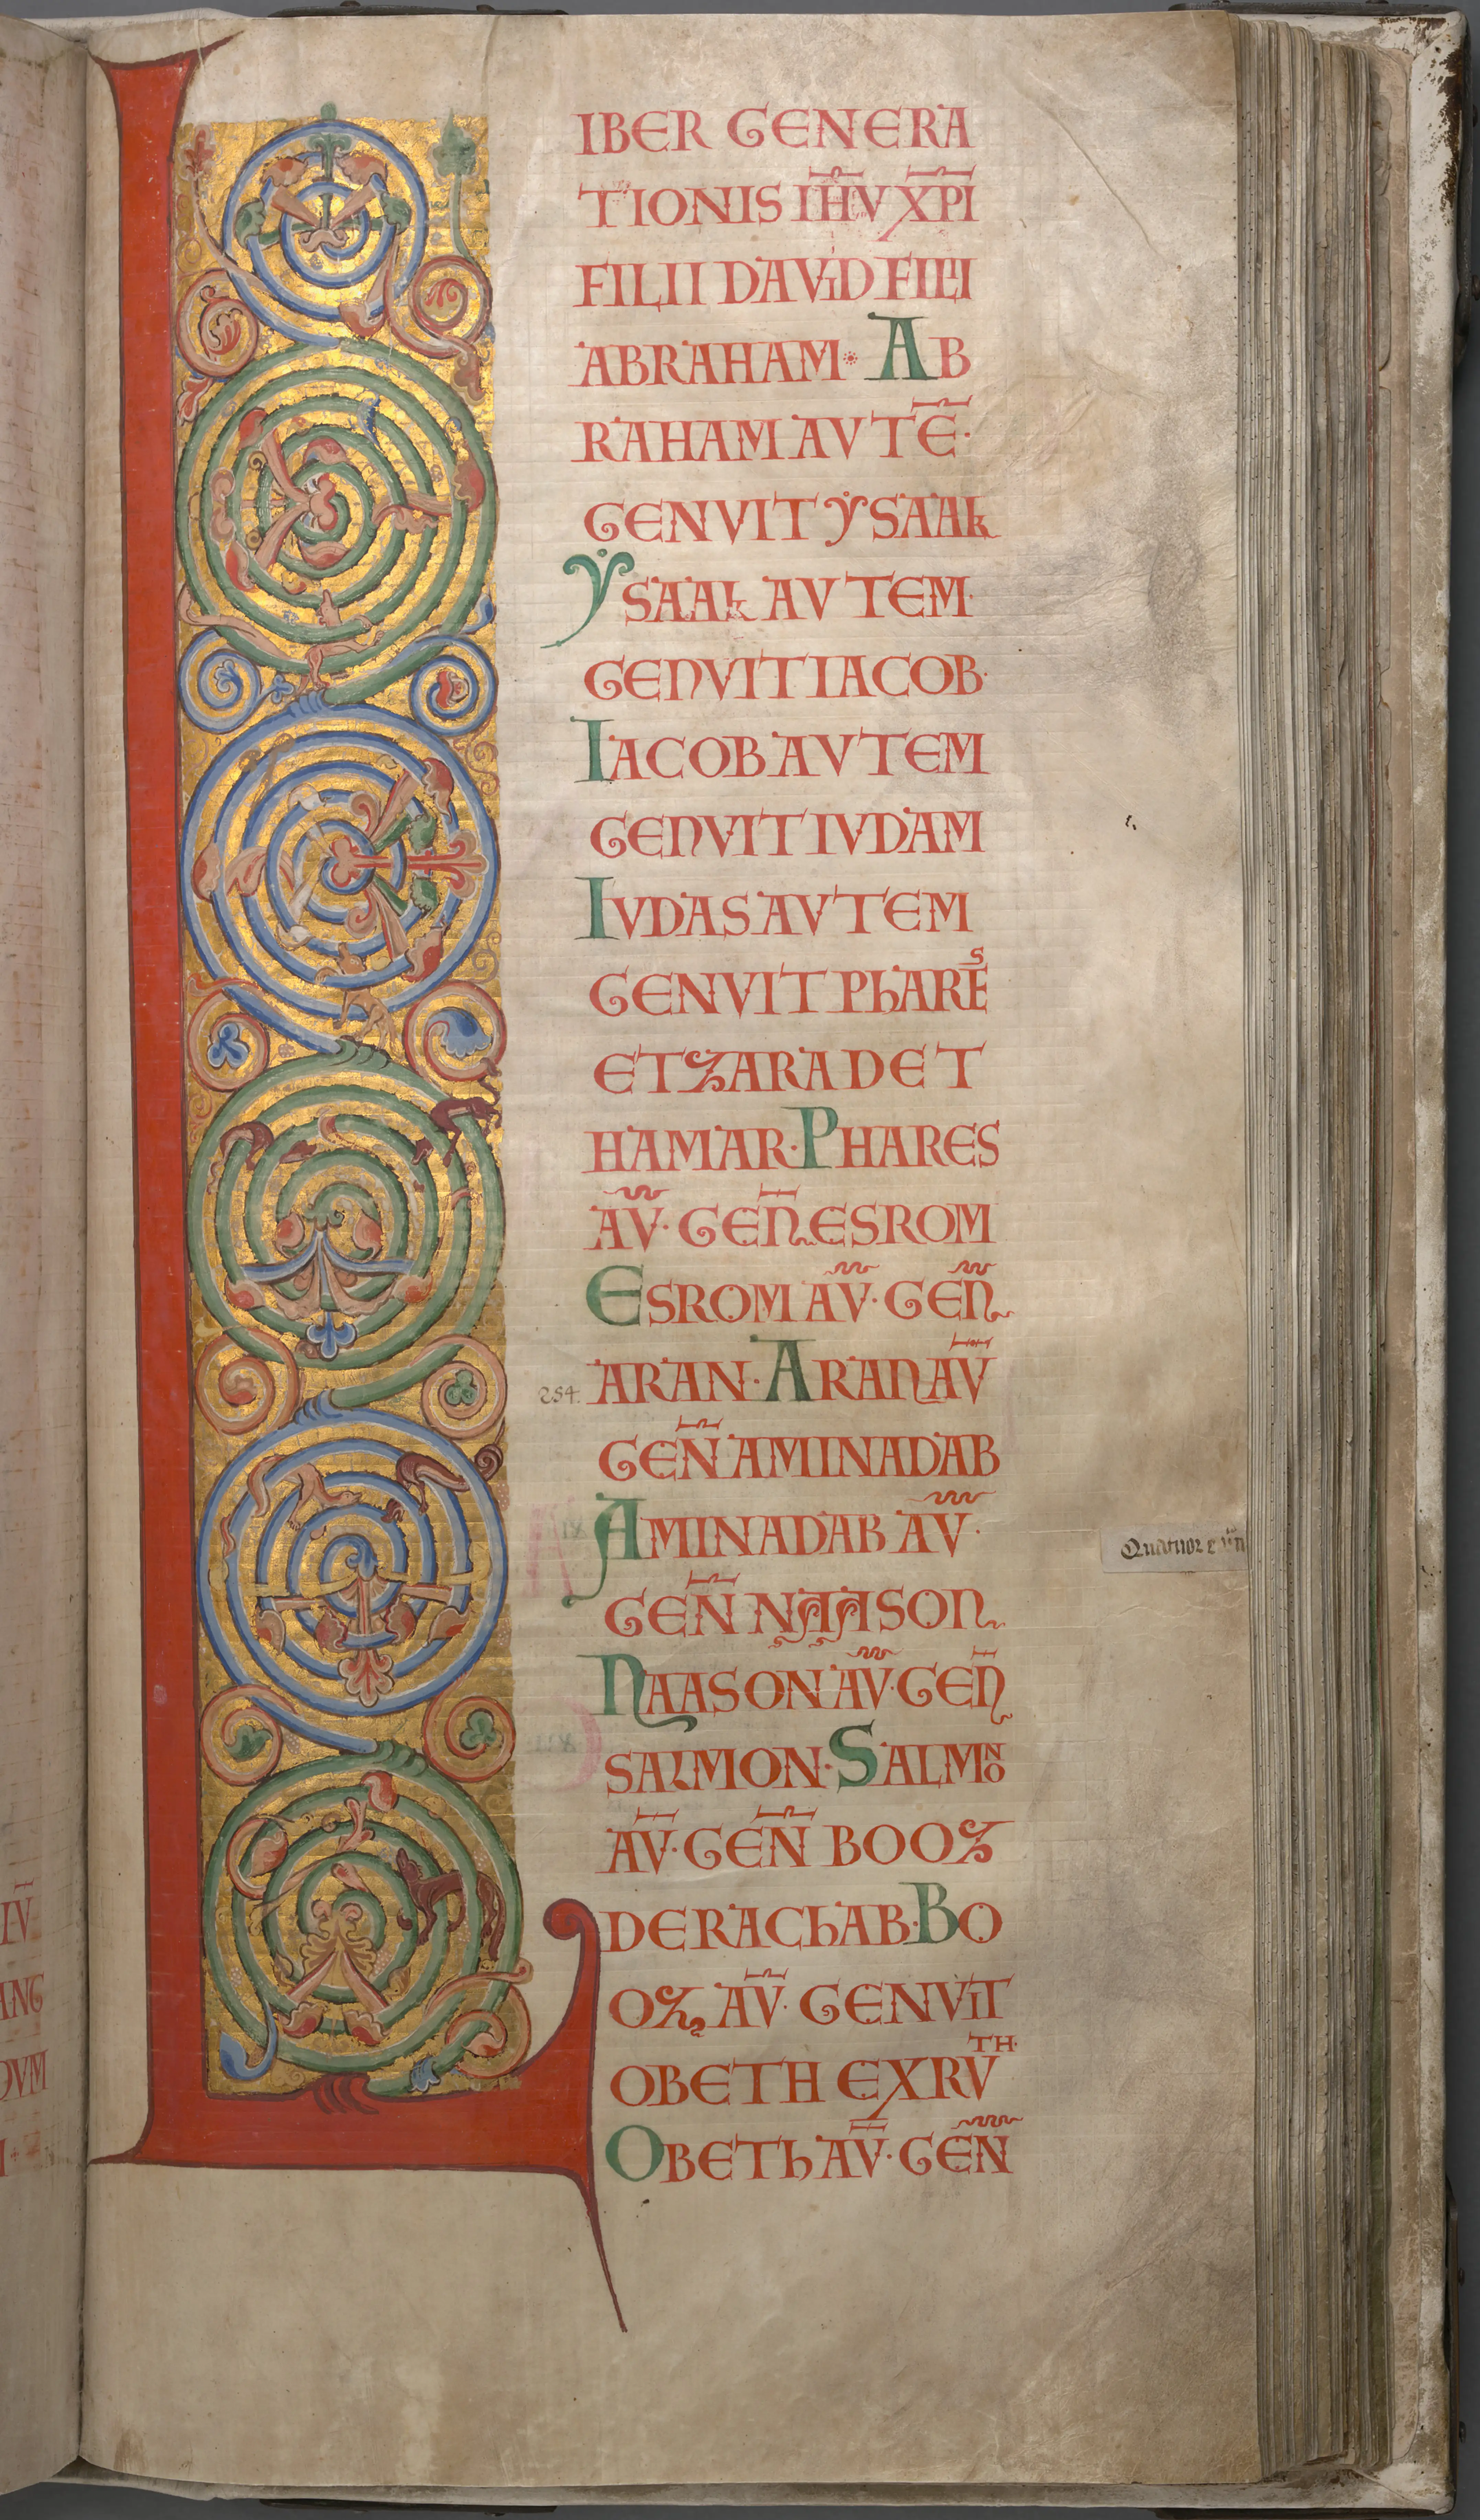 LIBER GENERA
TIONIS IH̅V XP̅I
FILII DAVID FILII
ABRAHAM· AB
RAHAM AVTE̅·
GENVIT YSAAk
YSAAk AVTEM·
GENVIT IACOB·
IACOB AVTEM
GENVIT IVDAM
IVDAS AVTEM
GENVIT PhARES
ET ZARA DE T
HAMAR· PHARES
AV̅· GEN̅ ESROM
ESROM AV̅· GEN̅
254. ARAN· ARAN AV̅
GEN̅ AMINADAB
AMINADAB AV̅·
Quatuor
GEN̅ NAASON
NAASON AV̅· GEN̅
SALMON· SALMON
AV̅· GEN̅ BOOZ
DE RAChAB· BO
OZ AV̅· GENVIT
OBETH EX RVTH·
OBETh AV̅· GEN̅
IV̅
ANG
DVM